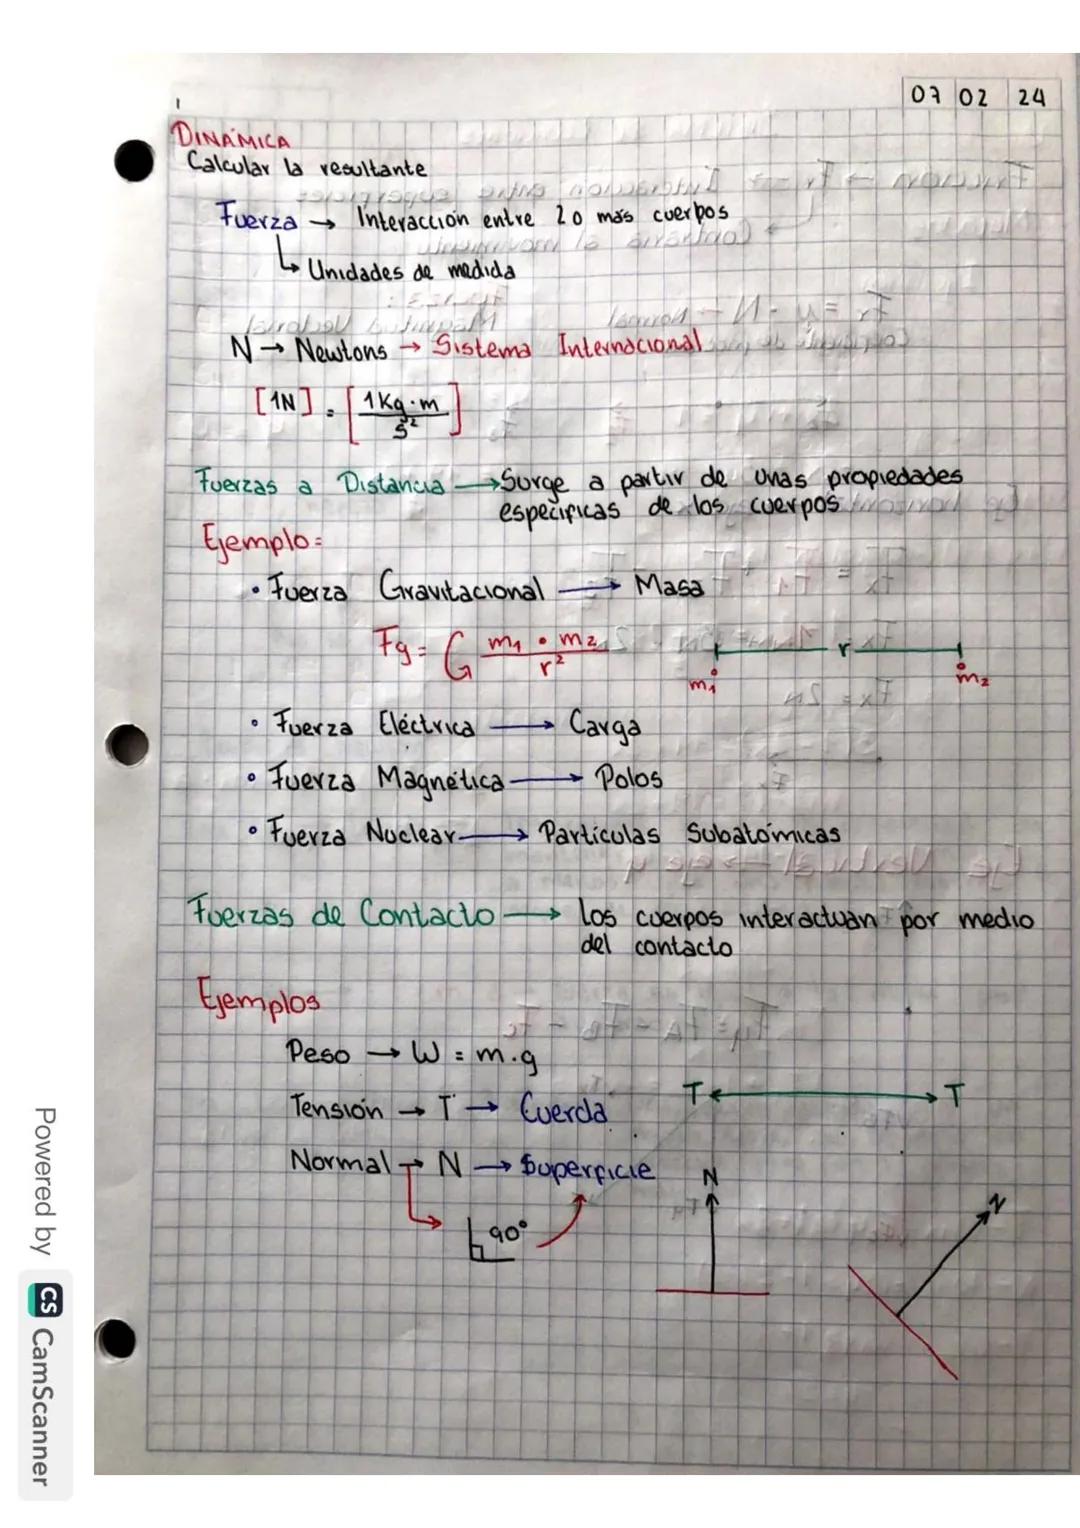 07 02 24
DINÁMICA
Calcular la resultante
Fuerza → Interacción entre 2 o más cuerpos
↳ Unidades de medida
N → Newtons → Sistema Internacional
[1N] = [1Kg·m / s²]
Fuerzas a Distancia → Surge a partir de unas propiedades
especificas de los cuerpos
Ejemplo:
• Fuerza Gravitacional → Masa
Fg = G m₁ • m₂ / r²
r
m₁ m₂
• Fuerza Eléctrica → Carga
• Fuerza Magnética → Polos
• Fuerza Nuclear → Partículas Subatómicas
Fuerzas de Contacto → los cuerpos interactuan por medio
del contacto
Ejemplos
Peso → W = m.g
Tensión → T → Cuerda
T T
Normal → N → Superficie
90°
N
N
Powered by CS CamScanner